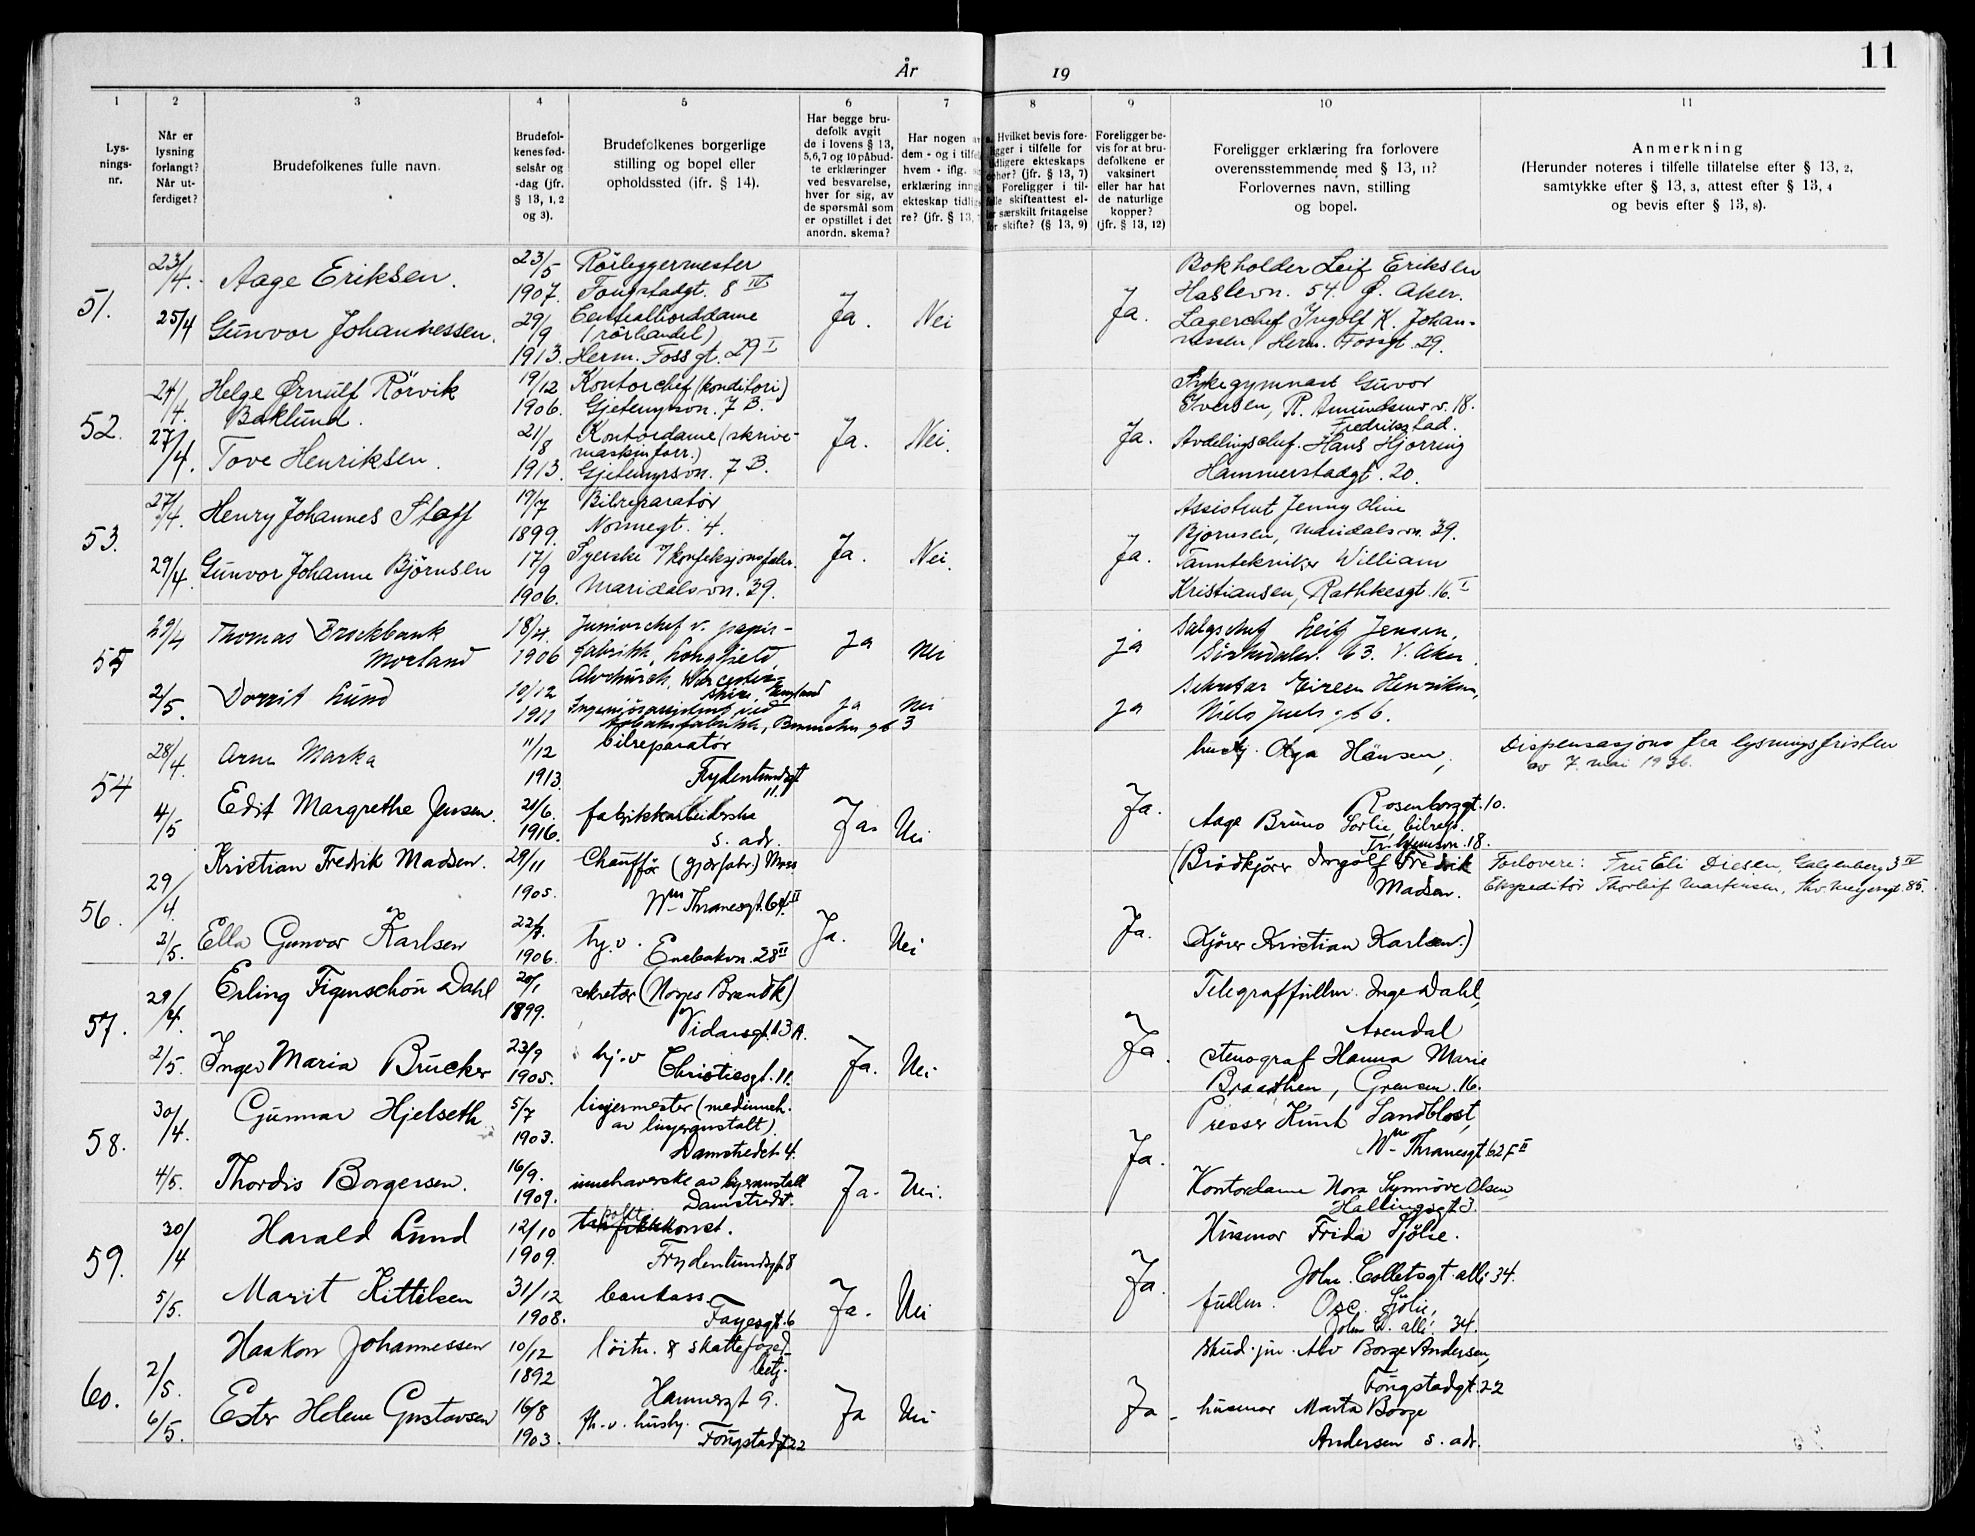 År 19
11
1 2 3 4 5 6 7 8 9 10 11
Lys-
nings-
nr.
Når er
lysning
forlangt?
Når ut-
ferdiget?
Brudefolkenes fulle navn.
Brudefol-
kenes fød-
selsår og
-dag (jfr.
§ 13, 1, 2
og 3).
Brudefolkenes borgerlige
stilling og bopel eller
opholdssted (ifr. § 14).
Har begge bru-
defolk avgit
de i lovens § 13,
5, 6, 7 og 10 påbud-
te erklæringer
ved besvarelse,
hver for sig, av
de spørsmål som
er opstillet i det
anordn. skema?
Har nogen
dem - og i
hvem - iflg.
erklæring
ekteskap
re? (jfr. § 13,
Hvilket bevis fore-
ligger i tilfelle for
tidligere ekteskaps
ophør? (jfr. § 13, 7)
Foreligger i til-
felle skifteattest el-
ler særskilt fritagelse
for skifte? (§ 13, 9)
Foreligger be-
vis for at bru-
defolkene er
vaksinert
eller har hat
de naturlige
kopper?
(jfr. § 13, 12)
Foreligger erklæring fra forlovere
overensstemmende med § 13, 11?
Forlovernes navn, stilling
og bopel.
Anmerkning
(Herunder noteres i tilfelle tillatelse efter § 13, 2,
samtykke efter § 13, 3, attest efter § 13, 4
og bevis efter § 13, 8).
51.
23/4.
25/4
Aage Eriksen.
Gunvor Johannessen.
23/5
1907.
29/9
1913.
Rörleggermester
Fougstadgt. 8 IV
Centralborddame
(rörhandel)
Herm. Foss gt. 29 I
Ja.
Nei
Ja.
Bokholder Leif Eriksen
Haslevn. 54. Ø. Aker.
Lagerchef Ingolf K. Johan-
nessen, Herm. Fossgt. 29.
52.
24/4.
27/4.
Helge Ørnulf Rörvik
Baklund.
Tove Henriksen.
19/12
1906.
21/8
1913.
Kontorchef (konditori)
Gjetemyrsvn. 7 B.
Kontordame (skrive-
maskinforr.)
Gjetemyrsvn. 7 B.
Ja.
Nei.
Ja.
Sykegymnast Guvor
Iversen, R. Amundsens v. 18.
Fredrikstad.
Avdelingschef. Hans Hjorring
Hammerstadgt. 20.
53.
27/4.
29/4.
Henry Johannes Staff
Gunvor Johanne Björnsen
19/7
1899.
17/9
1906.
Bilreparatør
Nornegt. 4.
Syerske v/konfeksjonsfabr.
Maridalsvn. 39.
Ja.
Nei.
Ja.
Assistent Jenny Oline
Bjørnsen, Maridalsvn. 39.
Tanntekniker William
Kristiansen, Rathkesgt. 16. I
55
29/4
2/5.
Thomas Brockbank
Morland
Dorrit Lund
18/4.
1906
10/12
1911
Juniorchef v. papir-
fabrikk, Longfield,
Alvchurch, Worcester-
shire, England
Ingeniørassistent ved
tobakksfabrikk,
ja
nei
ja
nei
ja
ja
Salgschef Leif Jensen,
63. V. Aker.
Sekretær Eireen Henriksen,
Niels Juels gt 6.
54
28/4.
4/5
Arne Marka
Edit Margrethe Jensen.
11/12
1913.
21/6.
1916.
bilreparatør
Frydenlundsgt
11.
fabrikkarbeiderske
s. adr.
Ja.
Nei
Ja.
Olga Hansen,
Rosenborggt. 10.
Aage Bruno Sorlie, bilrep.
18.
Dispensasjons fra lysningsfristen
av 7. mai 1936.
56.
29/4.
2/5.
Kristian Fredrik Madsen.
Ella Gunvor Karlsen
29/11
1905.
22/7.
1906.
Chauffør (gjærfabr.) Moss
Wm Thranesgt. 64 II
hj. v.
Enebakvn. 28 II
Ja.
Nei
Ja.
(Brødkjører Ingolf Fredrik
Madsen.
Kjører Kristian Karlsen.)
Forlovere: Fru Eli Diesen, Galgeberg 3 IV
Ekspeditør Thorleif Martensen, Thv. Meyersgt. 85.
57.
29/4.
2/5.
Erling Figenschou Dahl
Inger Maria Brucker
20/1
1899.
23/9
1905.
sekretær (Norges Brandk.)
Vidarsgt. 13 A.
hj. v
Christiesgt. 11.
Ja.
Nei
Ja.
Telegraffullm. Inge Dahl,
Arendal
stenograf Hanna Marie
Braathen, Grensen. 16.
58.
30/4.
4/5.
Gunnar Hjelseth
Thordis Borgersen.
5/7
1903.
16/9.
1909.
linjermester (medinneh.
av linjeranstalt).
Damstredet. 4.
innehaverske av linjeranstalt
Damstredet.
Ja.
Nei.
Ja.
reiser Knut Sandblost,
Wm Thranesgt 62 F II
Kontordame Nora Synnöve Olsen,
Hallingsgt 3.
59.
30/4
5/5.
Harald Lund
Marit Kittelsen
12/10
1909.
31/12
1908.
Frydenlundsgt 8
bankass.
Fayesgt. 6
Ja.
Nei
Ja.
Husmor Frida Sjölie.
John. Colletsgt. alle 34.
fullm. Osc. Sjölie,
John C. alle 34.
60.
2/5.
6/5.
Haakon Johannessen
Ester Helene Gustavsen
10/12
1892
16/8
1903.
löitn. & skattefoged-
betj.
Hammersgt 9.
fh. v. husby.
Fougstadgt 22
Ja
Nei
Ja.
stud. jur. Alv Borge Andersen,
Fougstadgt 22
husmor Marta Borge
Andersen s. adr.